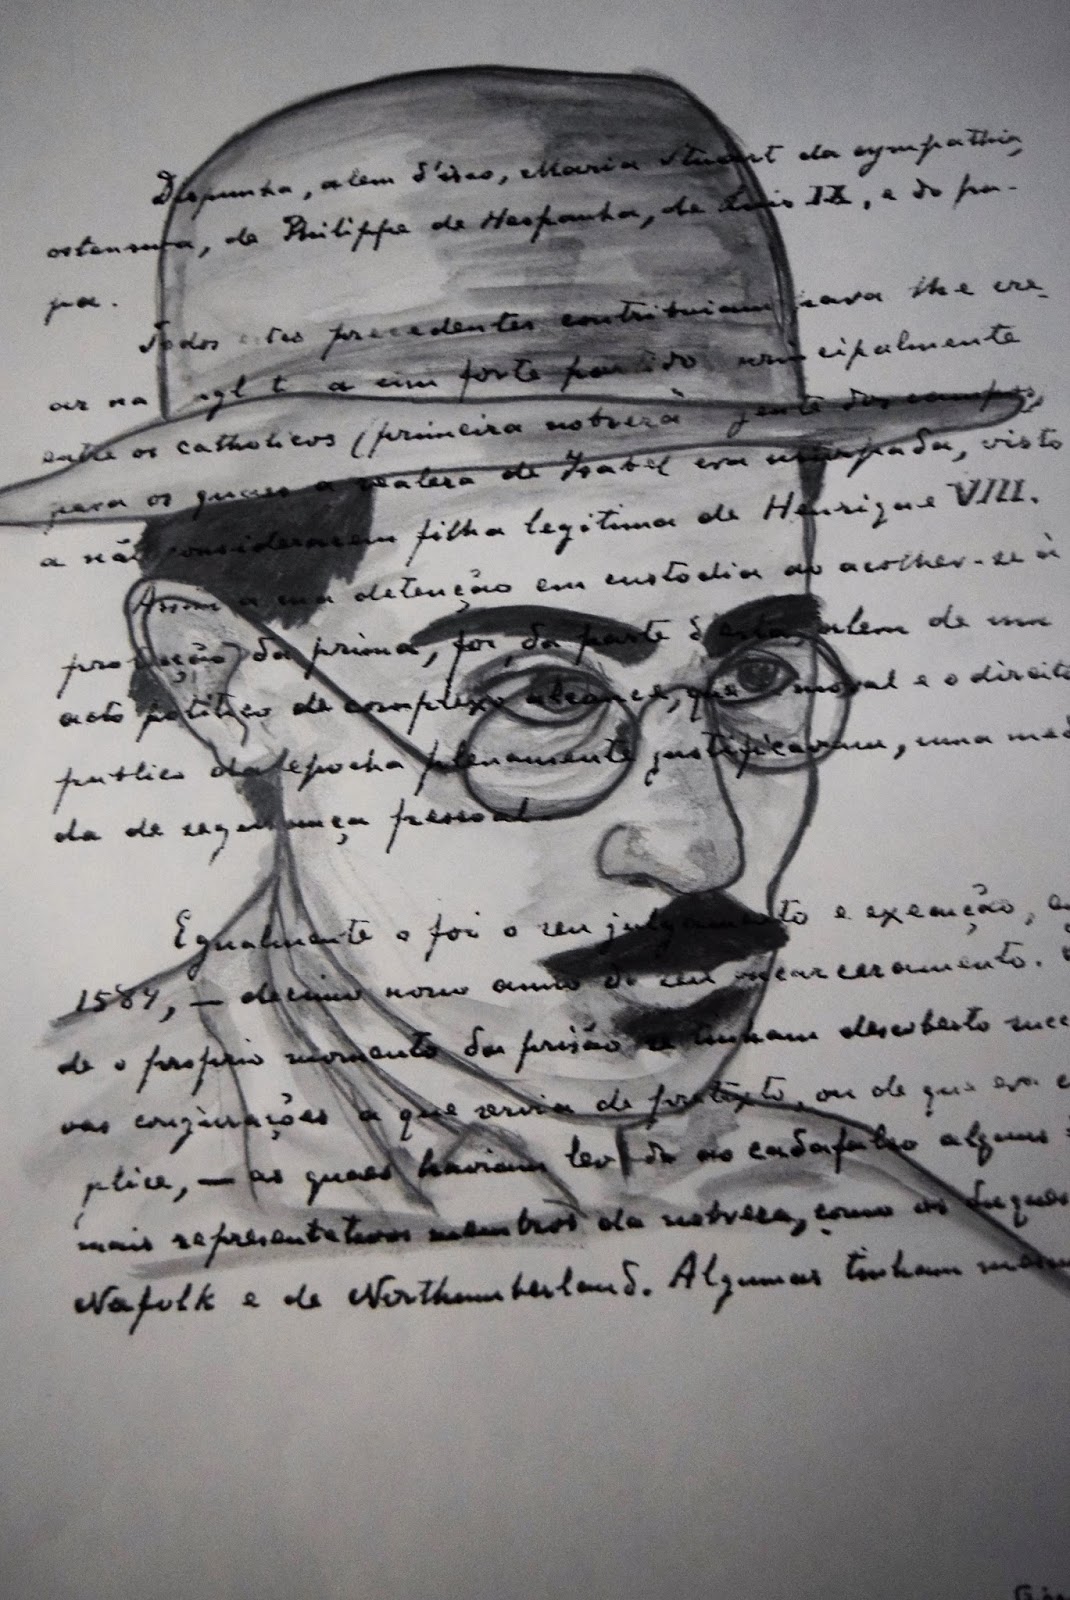 Dispunha, alem d'isso, Maria Stuart da sympathia,
ostensiva, de Philippe de Hespanha, de Luis IX, e do pa-
pa.
Todos estes precedentes contribuiam para lhe cre-
ar na um forte partido principalmente
entre os catholicos (primeira nobreza gente dos campos,
para os quaes a realeza de Isabel era usurpada, visto
a não considerarem filha legitima de Henrique VIII.
Assim a sua detenção em custodia ao acolher-se à
protecção da prima, foi, da parte d'esta, alem de um
acto politico de complexo alcance, que a moral e o direito
publico da epocha plenamente justificavam, uma med
da de segurança pessoal
Egualmente o foi o seu julgamento e execução,
1584, — decimo nono anno do seu encarceramento.
de o proprio momento da prisão se tinham descoberto succe
vas conjurações a que servia de pretexto, ou de que era c
plice, — as quaes haviam levado ao cadafalso alguns
mais representativos membros da nobreza, como os duques
Nofolk e de Northumberland. Algumas tinham mesm